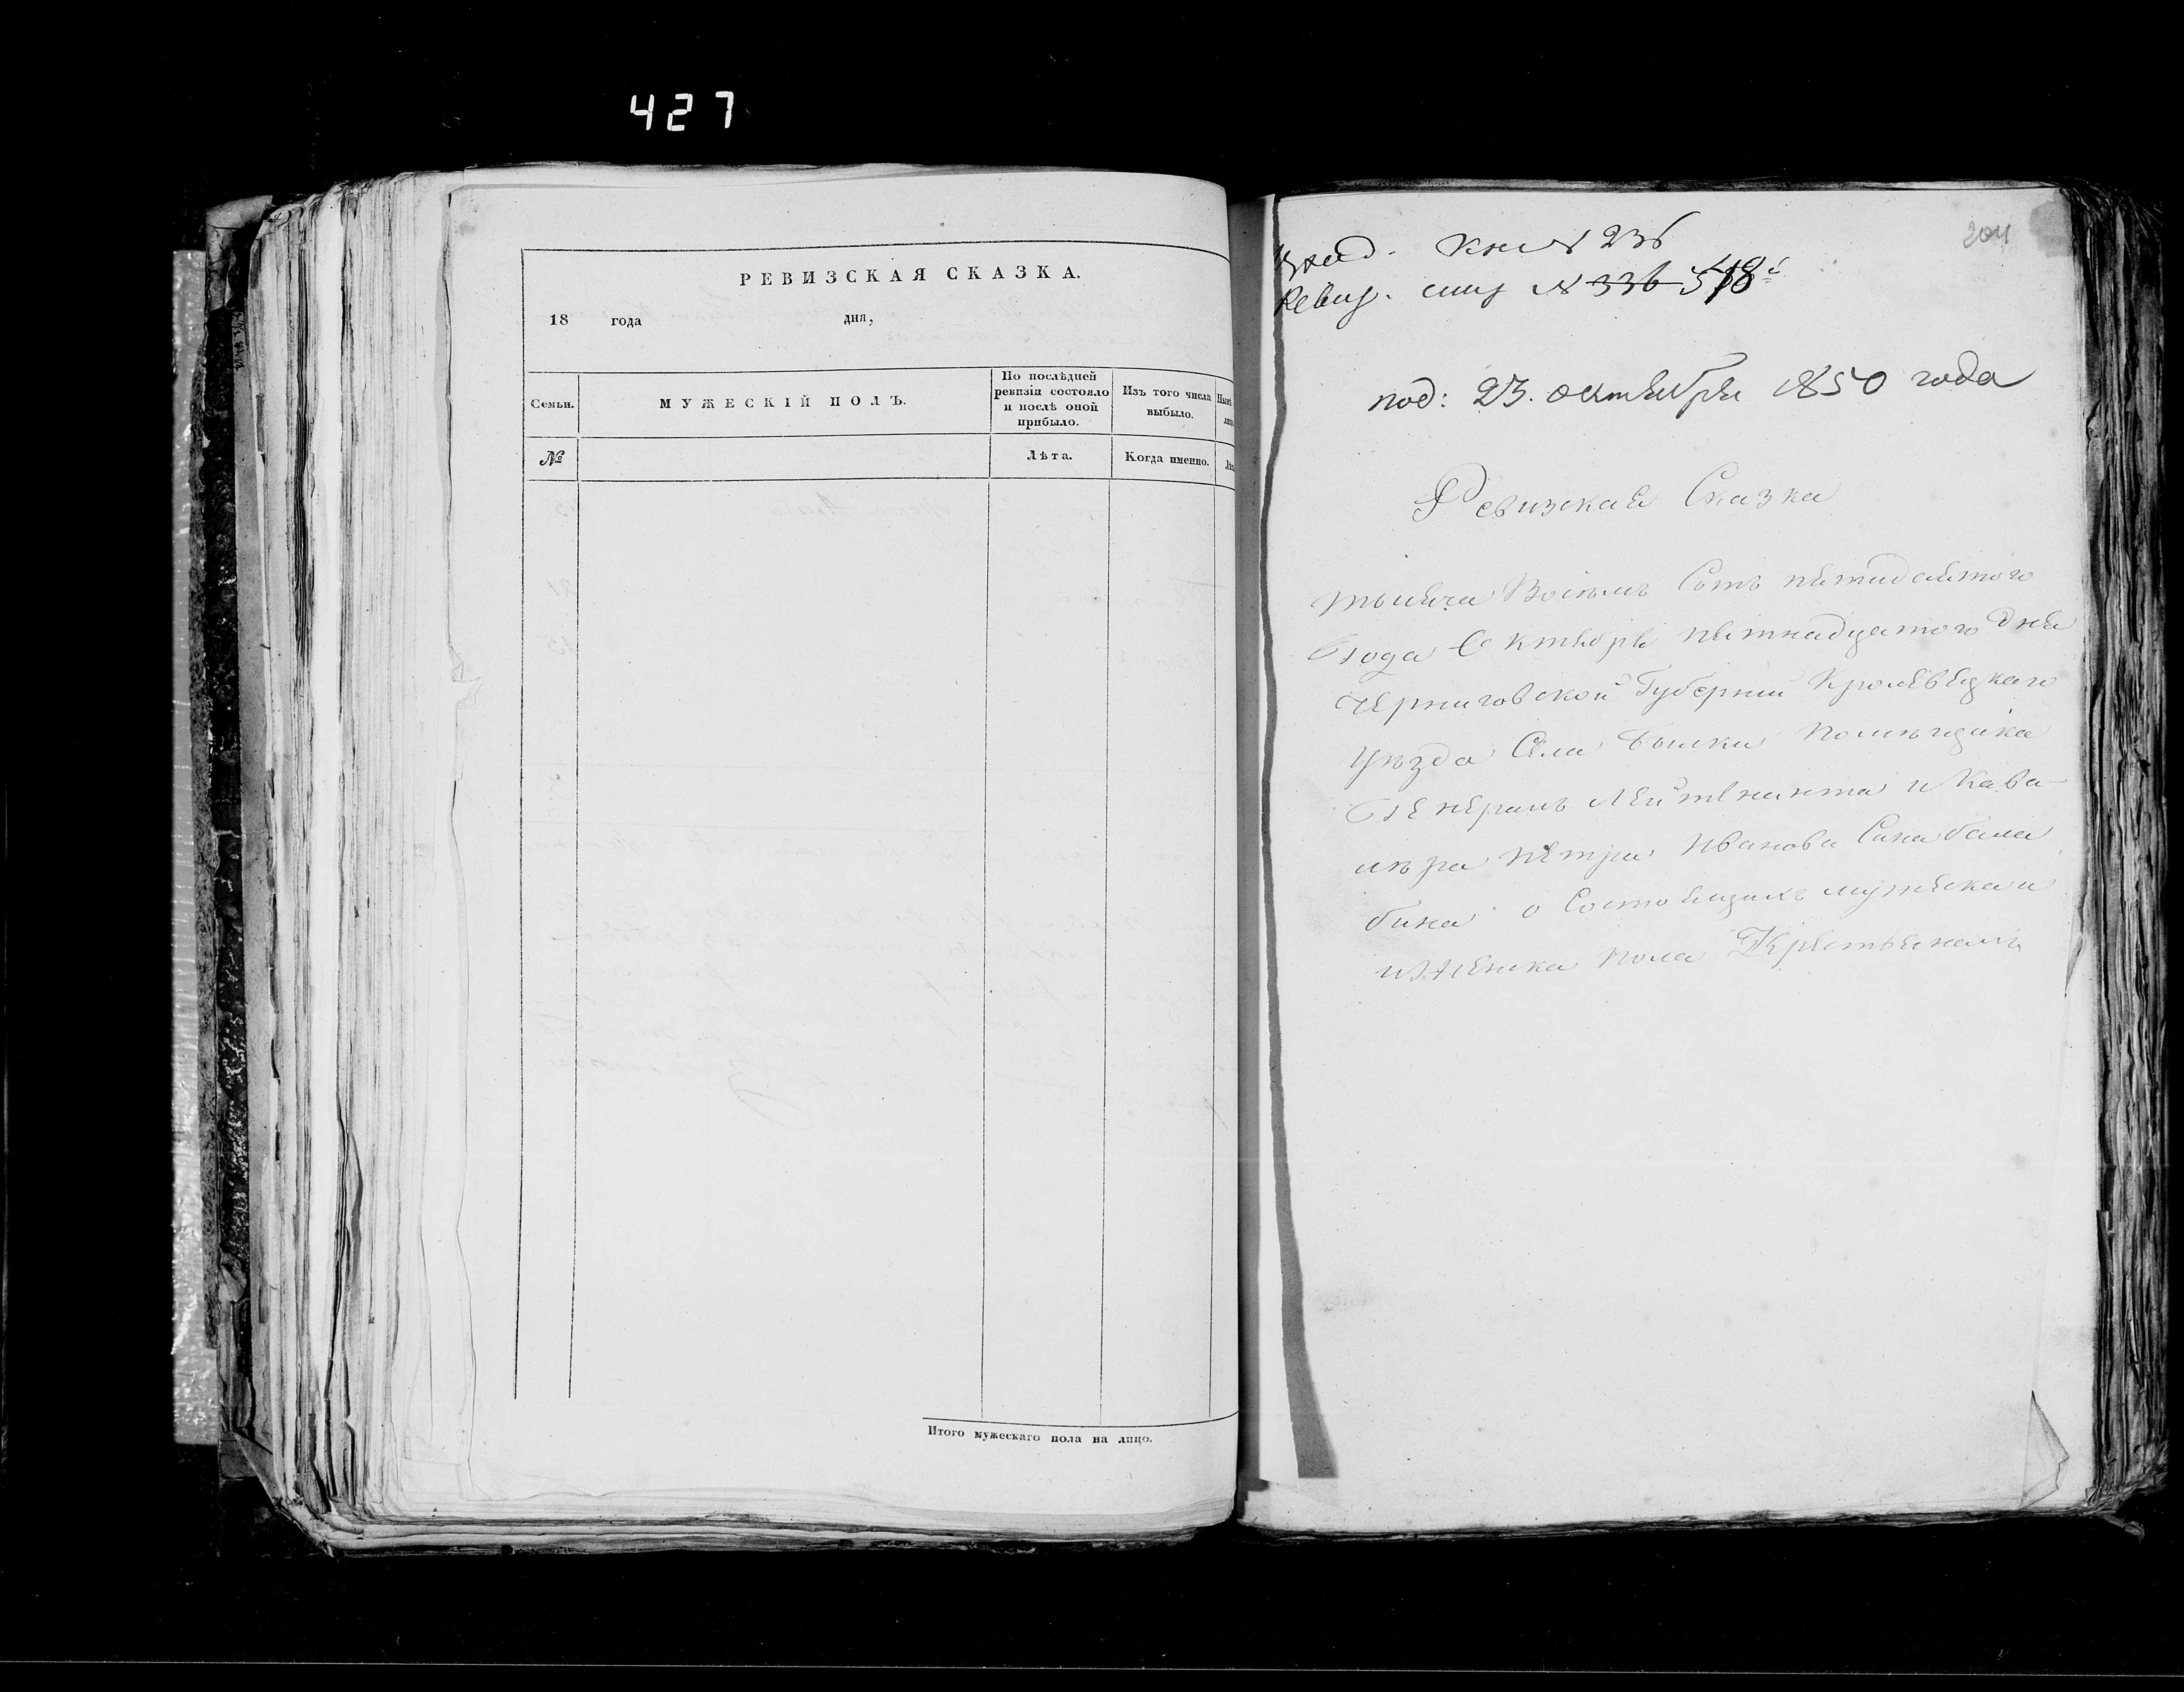 427
РЕВИЗСКАЯ СКАЗКА.
18 года дня,
Семьи.
МУЖЕСКІЙ ПОЛЪ.
По послѣдней ревизіи состояло и послѣ оной прибыло.
Изъ того числа выбыло.
№
Лѣта.
Когда именно.
Итого мужескаго пола на лицо.
204
кн № 236
Ревиз. № 336 518
под: 23. октября 1850 года
Ревизская Сказка
тысяча Восемь Сотъ пятидесятого
года Октября пятнадцатого дня
Черниговской Губерніи Кролевецкаго
Уѣзда Села помѣщика
Генералъ Лейтенанта и Кава-
лера Петра Иванова Сина Бала
бина о Состоящихъ мужеска и
женска пола Крестьянахъ